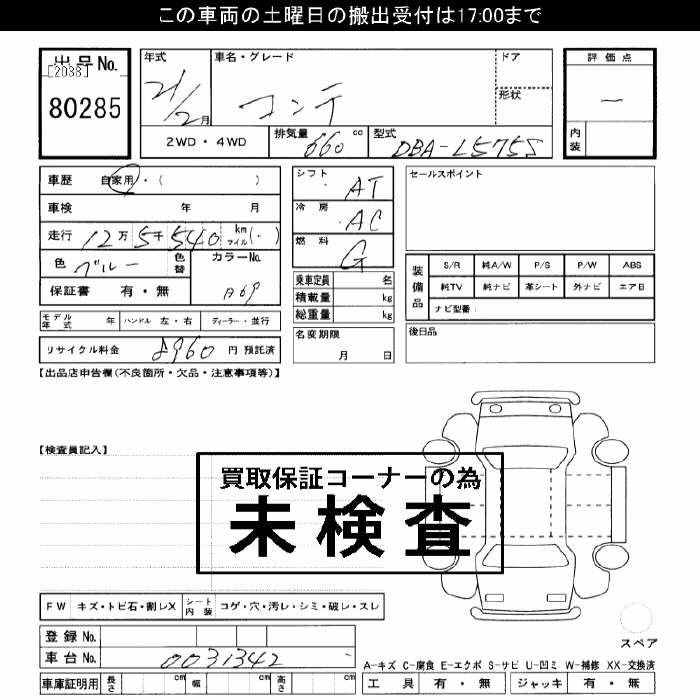 この車両の土曜日の搬出受付は17:00まで
出品No.
[2038]
80285
年式
21/2月
車名・グレード
コンテ
ドア
形状
評価点
―
内装
2WD・4WD
排気量 660 cc
型式 DBA-L575S
車歴 自家用・( )
車検 年 月
走行 12万 5千 540 km マイル(・)
色 ブルー 色替
カラーNo.
保証書 有・無
モデル年式 年 ハンドル 左・右 ディーラー・並行
リサイクル料金 8960 円 預託済
シフト AT
冷房 AC
燃料 G
乗車定員 名
積載量 kg
総重量 kg
名変期限
月 日
セールスポイント
装備品
S/R 純A/W P/S P/W ABS
純TV 純ナビ 革シート 外ナビ エアB
ナビ型番:
後日品
【出品店申告欄(不良箇所・欠品・注意事項等)】
【検査員記入】
買取保証コーナーの為
未検査
FW キズ・トビ石・割レX
シート内装 コゲ・穴・汚レ・シミ・破レ・スレ
登録No.
車台No. 0031342
車庫証明用 長さ cm 幅 cm 高さ cm
スペア
A-キズ C-腐食 E-エクボ S-サビ U-凹ミ W-補修 XX-交換済
工具 有・無 ジャッキ 有・無